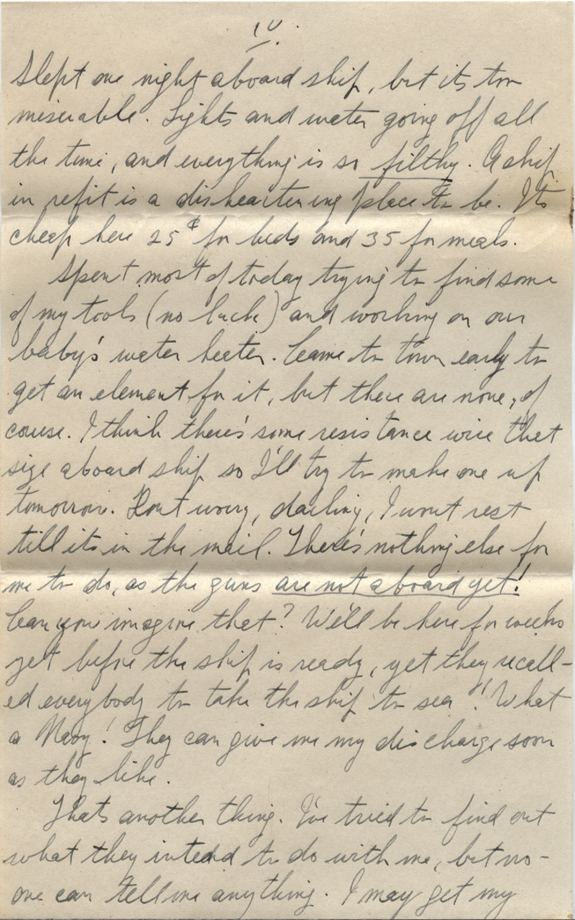 IV.
Slept one night aboard ship, but its too
miserable. Lights and water going off all
the time, and everything is so filthy. A ship
in refit is a disheartening place to be. Its
cheap here 25¢ for beds and 35 for meals.
Spent most of today trying to find some
of my tools (no luck) and working on our
baby's water heeter. Came to town early to
get an element for it, but there are none, of
couse. I think there's some resistance wire that
size aboard ship so I'll try to make one up
tomorrow. Dont worry, darling, I wont rest
till its in the mail. There's nothing else for
me to do, as the guns are not aboard yet!
Can you imagine that? We'll be here for weeks
yet before the ship is ready, yet they recall-
ed everybody to take the ship to sea"! What
a Navy! They can give me my discharge soon
as they like.
Thats another thing. I've tried to find out
what they intend to do with me, but no-
one can tell me anything. I may get my